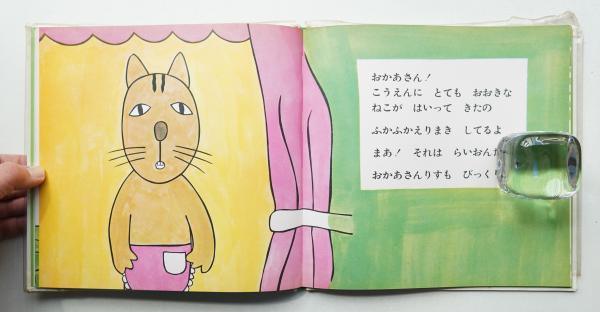 おかあさん！
こうえんに とても おおきな
ねこが はいって きたの
ふかふかえりまき してるよ
まあ！ それは らいおんだ
おかあさんりすも びっくり